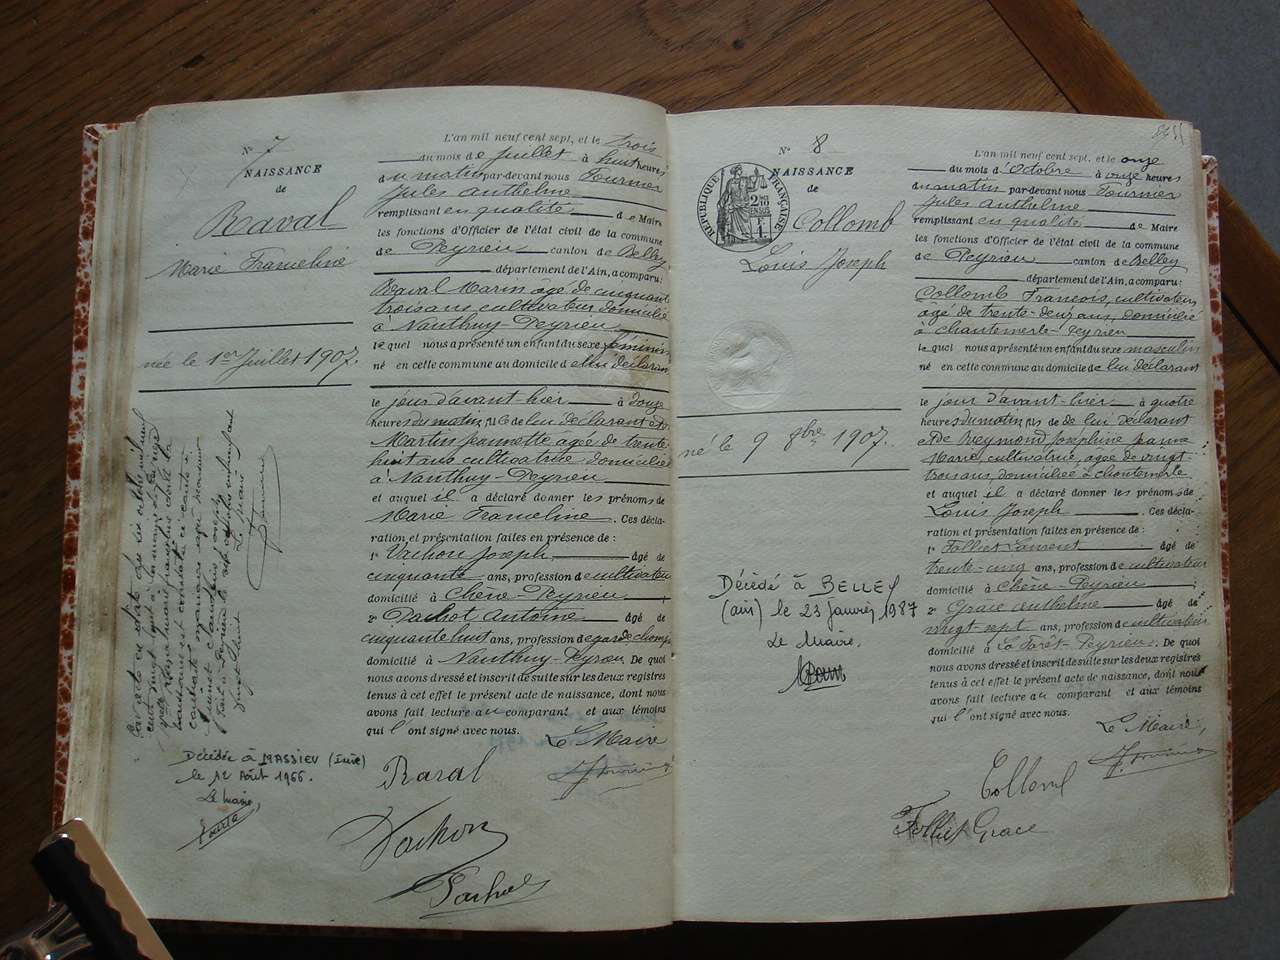 N° 7
NAISSANCE
de
Raval
Marie Franceline
née le 1er Juillet 1907.
L'an mil neuf cent sept, et le trois
du mois de Juillet à huit heures
du matin par-devant nous Fournier
Jules Anthelme
remplissant en qualité de Maire
les fonctions d'Officier de l'état civil de la commune
de Peyrieu canton de Belley
département de l'Ain, a comparu:
Raval Marin agé de cinquante
trois ans cultivateur domicilié
à Nanthuy-Peyrieu
lequel nous a présenté un enfant du sexe féminin
né en cette commune au domicile de lui déclarant
le jour d'avant-hier à douze
heures du matin, fils de lui déclarant et de
Martin Jeannette agée de trente
huit ans cultivatrice domiciliée
à Nanthuy-Peyrieu
et auquel il a déclaré donner les prénoms de
Marie Franceline. Ces décla-
ration et présentation faites en présence de :
1° Vachon Joseph âgé de
cinquante ans, profession de cultivateur
domicilié à Chêne-Peyrieu
2° Pachot Antoine âgé de
cinquante huit ans, profession de garde champ
domicilié à Nanthuy-Peyrieu. De quoi
nous avons dressé et inscrit de suite sur les deux registres
tenus à cet effet le présent acte de naissance, dont nous
avons fait lecture au comparant et aux témoins
qui l'ont signé avec nous.
Le Maire
Raval
J. Fournier
Vachon
Pachot
Par acte en
Le Maire
Fournier
Décédée à MASSIEU (Isère)
le 12 Août 1966.
Le Maire,
N° 8
NAISSANCE
de
RÉPUBLIQUE FRANÇAISE
2 DIXMES
EN SUS
Collomb
Louis Joseph
né le 9 8bre 1907.
Décédé à BELLEY
(Ain) le 23 Janvier 1987
Le Maire,
L'an mil neuf cent sept, et le onze
du mois d'Octobre à onze heures
du matin par-devant nous Fournier
Jules Anthelme
remplissant en qualité de Maire
les fonctions d'Officier de l'état civil de la commune
de Peyrieu canton de Belley
département de l'Ain, a comparu:
Collomb François, cultivateur
agé de trente-deux ans, domicilié
à Chantemerle-Peyrieu
lequel nous a présenté un enfant du sexe masculin
né en cette commune au domicile de lui déclarant
le jour d'avant-hier à quatre
heures du matin, fils de de lui déclarant
et de Reymond Joséphine Jeanne
Marie, cultivatrice, agée de vingt
trois ans, domiciliée à Chantemerle
et auquel il a déclaré donner les prénoms de
Louis Joseph. Ces décla-
ration et présentation faites en présence de :
1° Folliet Laurent âgé de
trente-cinq ans, profession de cultivateur
domicilié à Chêne-Peyrieu
2° Grace Anthelme âgé de
vingt sept ans, profession de cultivateur
domicilié à La Forêt-Peyrieu. De quoi
nous avons dressé et inscrit de suite sur les deux registres
tenus à cet effet le présent acte de naissance, dont nous
avons fait lecture au comparant et aux témoins
qui l'ont signé avec nous.
Le Maire,
J. Fournier
Collomb
Folliet Grace